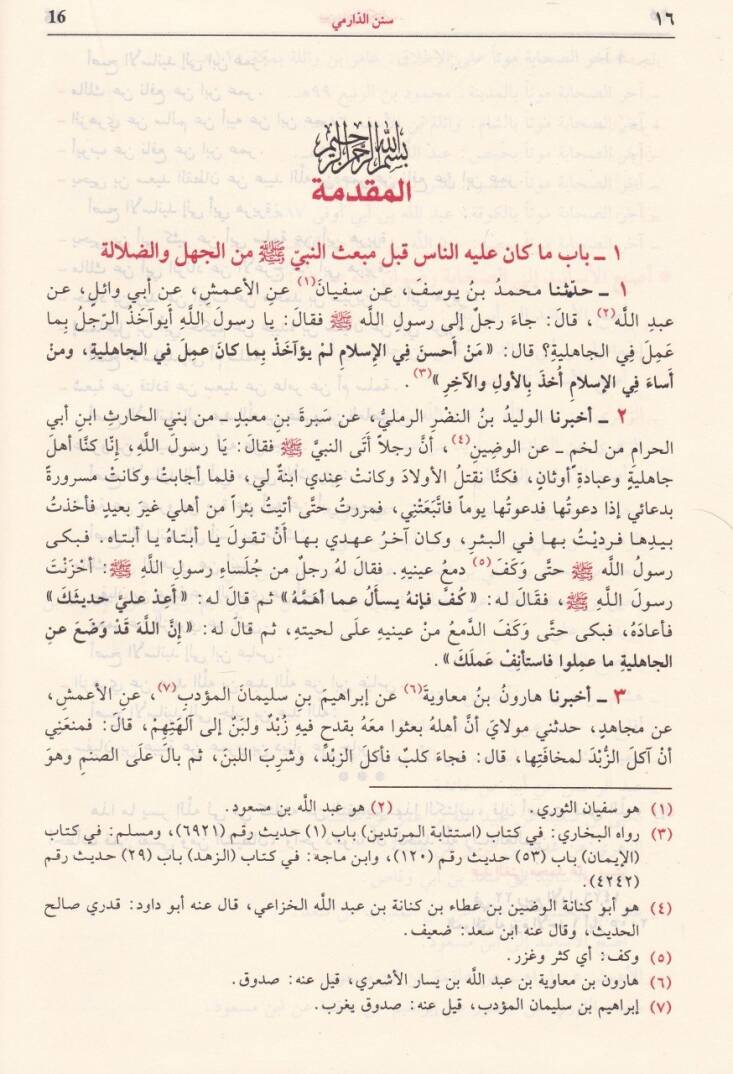 ١٦ سنن الدّارمي 16
بسم الله الرحمن الرحيم
المقدمة
١ ـ باب ما كان عليه الناس قبل مبعث النبيّ ﷺ من الجهل والضلالة
١ ـ حدّثنا محمدُ بنُ يوسفَ، عن سفيانَ(١) عنِ الأعمشِ، عن أبي وائلٍ، عن
عبدِ اللَّه(٢)، قالَ: جاءَ رجلٌ إلى رسولِ اللَّه ﷺ فقالَ: يا رسولَ اللَّهِ أيوآخَذُ الرّجلُ بِما
عَمِلَ فِي الجاهليةِ؟ قال: «مَنْ أحسنَ فِي الإسلامِ لمْ يؤآخَذْ بِما كانَ عمِلَ في الجاهليةِ، ومنْ
أساءَ فِي الإسلامِ أُخذَ بِالأولِ والآخِرِ»(٣).
٢ ـ أخبرنا الوليدُ بنُ النضْرِ الرمليُّ، عن سَبرةَ بنِ معبدٍ ـ من بني الحارثِ ابنِ أبي
الحرامِ من لخمٍ ـ عن الوضِينِ(٤)، أنَّ رجلاً أتَى النبيَّ ﷺ فقالَ: يَا رسولَ اللَّهِ، إنّا كنَّا أهلَ
جاهليةٍ وعبادةِ أوثانٍ، فكنَّا نقتلُ الأولادَ وكانتْ عِندي ابنةٌ لي، فلما أجابتْ وكانتْ مسرورةً
بدعائي إذا دعوتُها فدعوتُها يوماً فاتَّبَعَتْنِي، فمررتُ حتَّى أتيتُ بئراً من أهلي غيرَ بعيدٍ فأخذتُ
بيدِها فرديْتُ بها في البئرِ، وكان آخرُ عهدي بها أنْ تقولَ يا أبتاهُ يا أبتاه. فبكى
رسولُ اللَّه ﷺ حتَّى وَكَفَ(٥) دمعُ عينيهِ. فقالَ لهُ رجلٌ من جُلَساءِ رسولِ اللَّهِ ﷺ: أحْزَنْتَ
رسولَ اللَّهِ ﷺ، فقَالَ له: «كُفَّ فإنهُ يسألُ عما أهَمَّهُ» ثم قالَ له: «أعِدْ عليَّ حديثَكَ»
فأعادَهُ، فبكى حتَّى وَكَفَ الدَّمعُ منْ عينيهِ علَى لحيتهِ، ثم قالَ له: «إنَّ اللَّهَ قدْ وَضَعَ عنِ
الجاهليةِ ما عمِلوا فاستأنِفْ عملَكَ».
٣ ـ أخبرنا هارونُ بنُ معاويةَ(٦) عن إبراهيمَ بنِ سليمانَ المؤدبِ(٧)، عنِ الأعمشِ،
عن مجاهدٍ، حدثني مولايَ أنَّ أهلهُ بعثوا معَهُ بقدحٍ فيهِ زُبْدٌ ولبَنٌ إلى آلهَتِهِمْ، قالَ: فمنعَنِي
أنْ آكلَ الزُّبْدَ لمخافتِها، قال: فجاءَ كلبٌ فأكلَ الزبْدَ، وشَرِبَ اللبنَ، ثم بالَ علَى الصنمِ وهوَ
(١) هو سفيان الثوري. (٢) هو عبد اللَّه بن مسعود.
(٣) رواه البخاري: في كتاب (استتابة المرتدين) باب (١) حديث رقم (٦٩٢١)، ومسلم: في كتاب
(الإيمان) باب (٥٣) حديث رقم (١٢٠)، وابن ماجه: في كتاب (الزهد) باب (٢٩) حديث رقم
(٤٢٤٢).
(٤) هو أبو كنانة الوضين بن عطاء بن كنانة بن عبد اللَّه الخزاعي، قال عنه أبو داود: قدري صالح
الحديث، وقال عنه ابن سعد: ضعيف.
(٥) وكف: أي كثر وغزر.
(٦) هارون بن معاوية بن عبد اللَّه بن يسار الأشعري، قيل عنه: صدوق.
(٧) إبراهيم بن سليمان المؤدب، قيل عنه: صدوق يغرب.